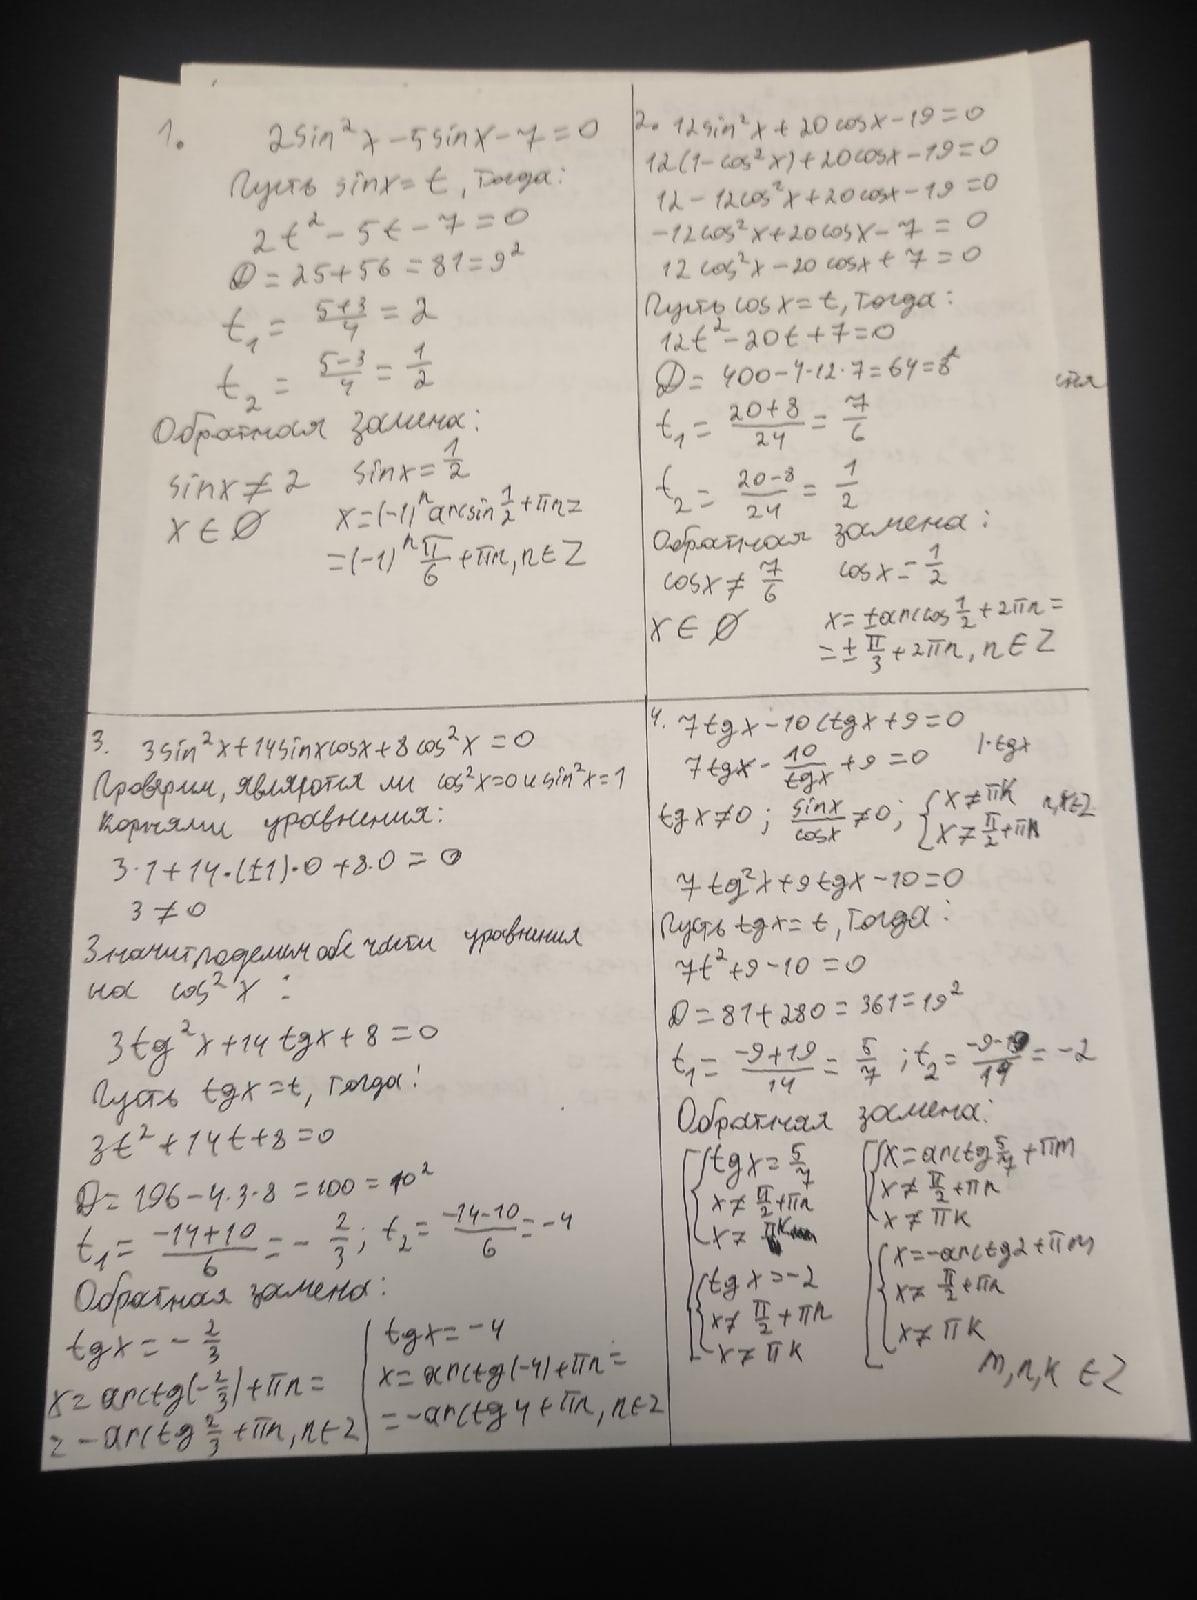 1. 2sin²x-5sinx-7=0
Пусть sinx=t, тогда:
2t²-5t-7=0
D=25+56=81=9²
t₁=(5+3)/4=2
t₂=(5-3)/4=1/2
Обратная замена:
sinx≠2 sinx=1/2
x∈∅ x=(-1)ⁿarcsin1/2+πn=
=(-1)ⁿπ/6+πn, n∈Z
2. 12sin²x+20cosx-19=0
12(1-cos²x)+20cosx-19=0
12-12cos²x+20cosx-19=0
-12cos²x+20cosx-7=0
12cos²x-20cosx+7=0
Пусть cosx=t, тогда:
12t²-20t+7=0
D=400-4·12·7=64=8²
t₁=(20+8)/24=7/6
t₂=(20-8)/24=1/2
Обратная замена:
cosx≠7/6 cosx=1/2
x∈∅ x=±arccos1/2+2πn=
=±π/3+2πn, n∈Z
3. 3sin²x+14sinxcosx+8cos²x=0
Проверим, являются ли cos²x=0 и sin²x=1
корнями уравнения:
3·1+14·(±1)·0+8·0=0
3≠0
Значит поделим обе части уравнения
на cos²x:
3tg²x+14tgx+8=0
Пусть tgx=t, тогда:
3t²+14t+8=0
D=196-4·3·8=100=10²
t₁=(-14+10)/6=-2/3; t₂=(-14-10)/6=-4
Обратная замена:
tgx=-2/3 tgx=-4
x=arctg(-2/3)+πn= x=arctg(-4)+πn=
=-arctg2/3+πn, n∈Z =-arctg4+πn, n∈Z
4. 7tgx-10ctgx+9=0
7tgx-10/tgx+9=0 |·tgx
tgx≠0; sinx/cosx≠0; {x≠πk
x≠π/2+πn n,k∈Z
7tg²x+9tgx-10=0
Пусть tgx=t, тогда:
7t²+9-10=0
D=81+280=361=19²
t₁=(-9+19)/14=5/7; t₂=(-9-19)/14=-2
Обратная замена:
[{tgx=5/7 [{x=arctg5/7+πm
x≠π/2+πn x≠π/2+πn
x≠πk x≠πk
{tgx=-2 {x=-arctg2+πm
x≠π/2+πn x≠π/2+πn
x≠πk x≠πk
m,n,k∈Z